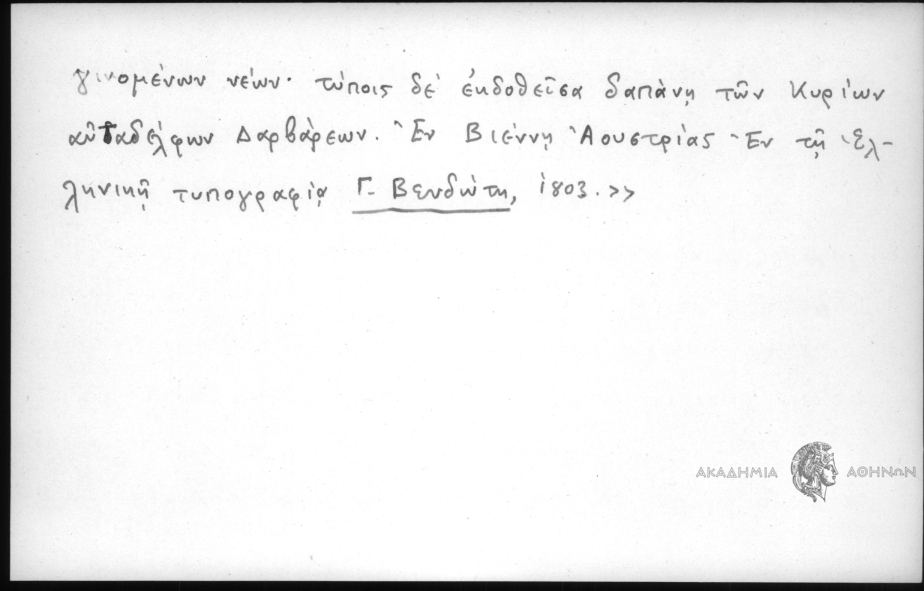 γινομένων νέων· τύποις δέ ἐκδοθεῖσα δαπάνῃ τῶν Κυρίων
αὐταδέλφων Δαρβάρεων. Ἐν Βιέννῃ Ἀουστρίας Ἐν τῇ Ἑλ-
ληνικῇ τυπογραφίᾳ Γ. Βενδώτη, 1803.>>
ΑΚΑΔΗΜΙΑ ΑΘΗΝΩΝ